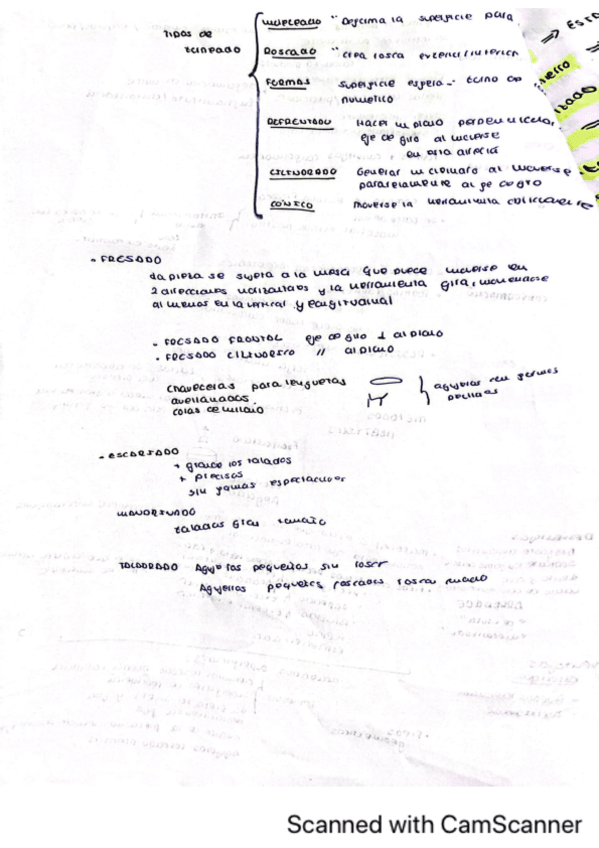 Tipos de
torneado
MOLETEADO "Deforma la superficie para
ROSCADO "crea rosca exterior/interior
FORMAS superficie esfera - torno co
numerico
REFRENTADO Hacer un plano perpendicular
eje de giro al moverse
en esta dirección
CILINDRADO Generar un cilindro al moverse
paralelamente al eje de giro
CÓNICO moverse la herramienta
- FRESADO
La pieza se sujeta a la mesa que puede moverse en
2 direcciones horizontales y la herramienta gira, moviendose
al menos en la vertical y longitudinal
- FRESADO FRONTAL eje de giro ⊥ al plano
- FRESADO CILINDRICO // al plano
chaveteras para lenguetas
avellanados.
colas de milano
agujeros con formas
- ESCARIADO
+ grande los taladros
+ precisos
sin
MANDRINADO
taladros gran tamaño
TALADRADO Agujeros pequeños sin roscar
Agujeros pequeños roscados rosca macho
Scanned with CamScanner